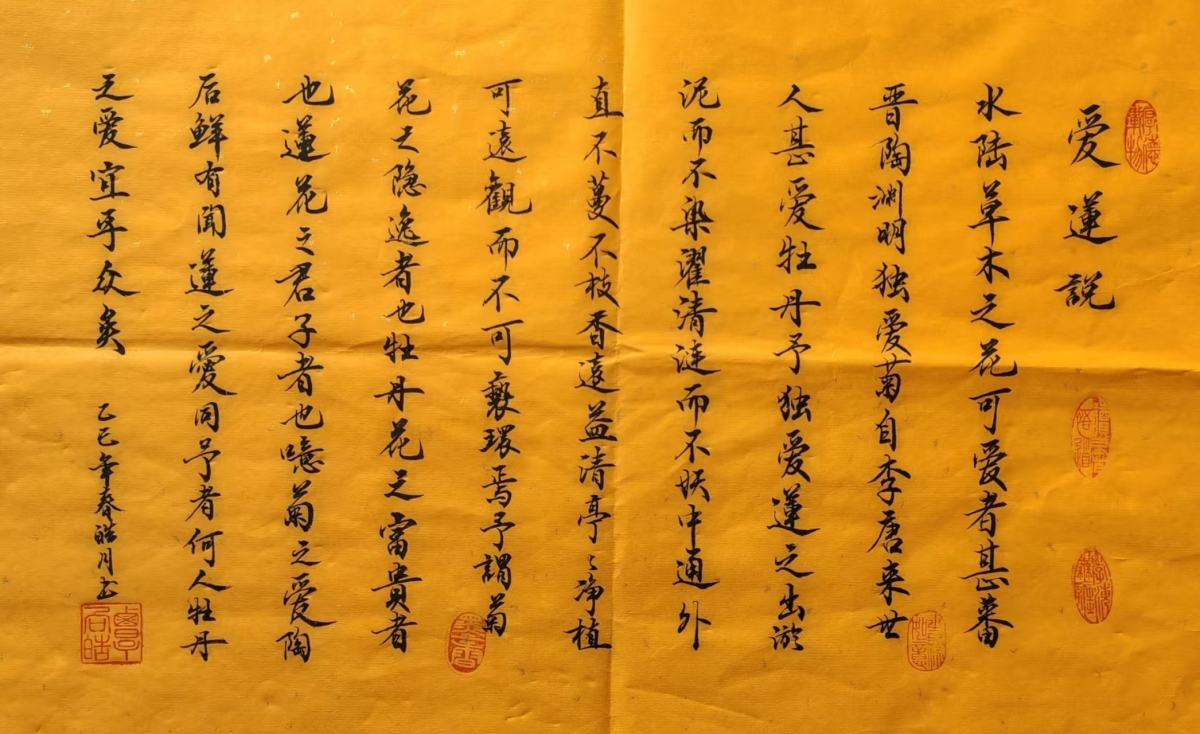 爱蓮説
水陆草木之花可爱者甚蕃
晋陶渊明独爱菊自李唐来世
人甚爱牡丹予独爱蓮之出淤
泥而不染濯清涟而不妖中通外
直不蔓不枝香遠益清亭〻净植
可遠觀而不可亵玩焉予謂菊
花之隐逸者也牡丹花之富貴者
也蓮花之君子者也噫菊之爱陶
后鲜有闻蓮之爱同予者何人牡丹
之爱宜乎众矣
乙巳年春皓月书